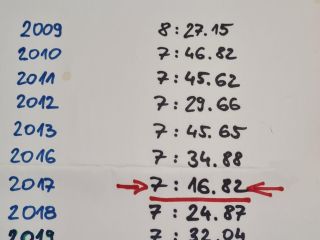 2009 8:27.15
2010 7:46.82
2011 7:45.62
2012 7:29.66
2013 7:45.65
2016 7:34.88
2017 7:16.82
2018 7:24.87
2019 7:32.04